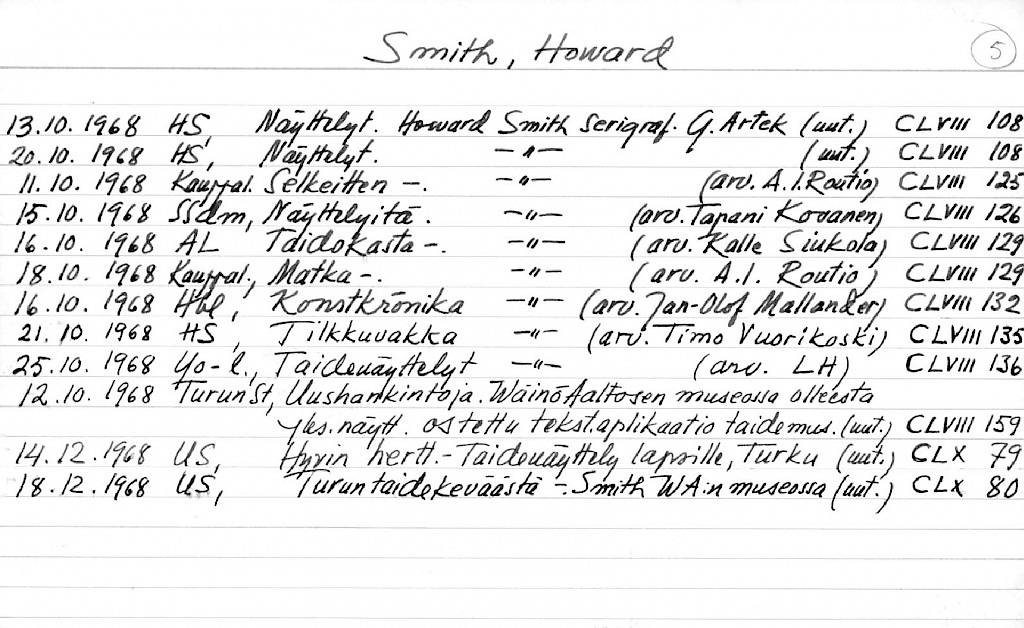 Smith, Howard
5
13.10.1968 HS, Näyttelyt. Howard Smith Serigraf. G. Artek (uut.) CLVIII 108
20.10.1968 HS, Näyttelyt. —"— (uut.) CLVIII 108
11.10.1968 Kauppal. Selkeitten —. —"— (arv. A.I. Routio) CLVIII 125
15.10.1968 SSdm, Näyttelyitä. —"— (arv. Tapani Kovanen) CLVIII 126
16.10.1968 AL Taidokasta —. —"— (arv. Kalle Siukola) CLVIII 129
18.10.1968 Kauppal., Matka —. —"— (arv. A.I. Routio) CLVIII 129
16.10.1968 Hbl, Konstkrönika —"— (arv. Jan-Olof Mallander) CLVIII 132
21.10.1968 HS, Tilkkuvakka —"— (arv. Timo Vuorikoski) CLVIII 135
25.10.1968 Yo-l., Taidenäyttelyt —"— (arv. LH) CLVIII 136
12.10.1968 TurunSt, Uushankintoja. Wäinö Aaltosen museossa olleesta
yks. näytt. ostettu tekst.aplikaatio taidemus. (uut.) CLVIII 159
14.12.1968 US, Hyvin hertt. – Taidenäyttely lapsille, Turku (uut.) CLX 79
18.12.1968 US, Turun taidekeväästä –. Smith WA:n museossa (uut.) CLX 80